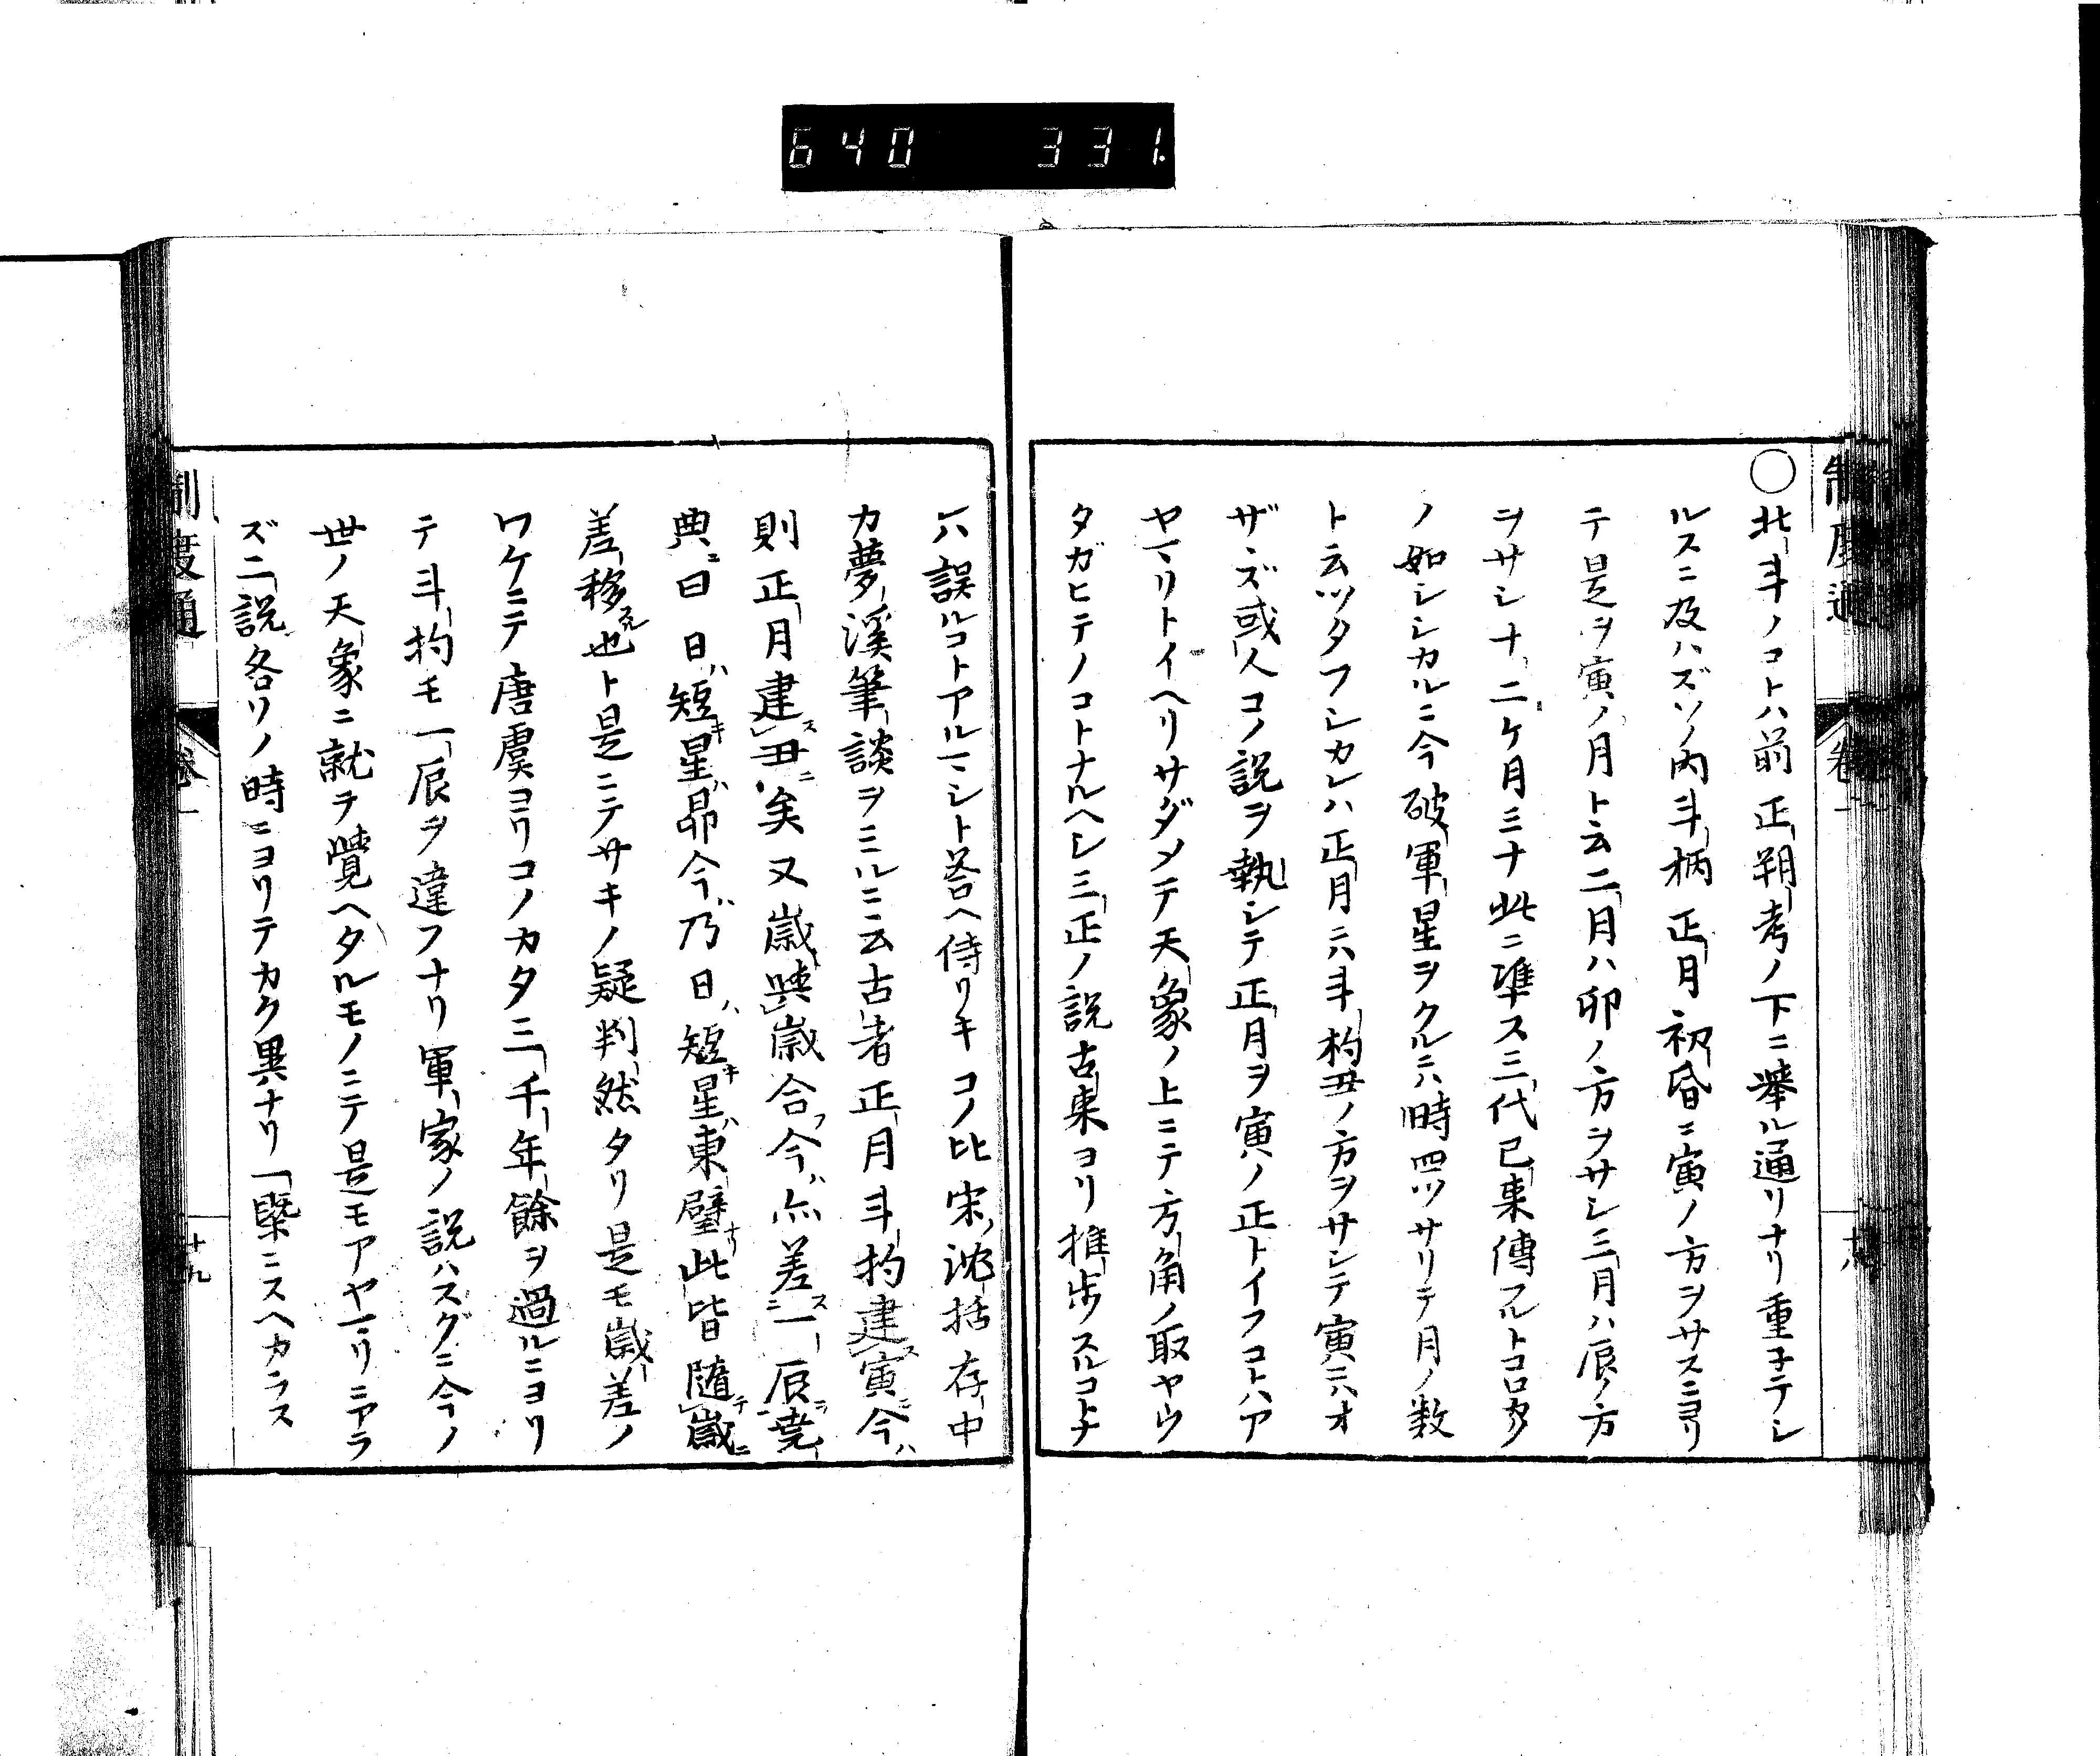 640 331.
制度通 卷一 十八
〇北斗ノコトハ前正朔考ノ下ニ舉ル通リナリ重子テシ
ルスニ及ハズソノ内斗柄正月初昏ニ寅ノ方ヲサスニヨリ
テ是ヲ寅ノ月ト云二月ハ卯ノ方ヲサシ三月ハ辰ノ方
ヲサシ十二ケ月ミナ此ニ準ス三代已来傳フルトコロカク
ノ如シシカルニ今破軍星ヲクルニハ時四ツサリテ月ノ数
ト云ツタフシカレハ正月ニハ斗杓丑ノ方ヲサシテ寅ニハオ
ザヾズ或人コノ説ヲ執シテ正月ヲ寅ノ正トイフコトハア
ヤマリトイヘリサダメテ天象ノ上ニテ方角ノ取ヤウ
タガヒテノコトナルヘシ三正ノ説古来ヨリ推歩スルコトナ
レハ誤ルコトアルマシト答ヘ侍リキコノ比宋ノ沈括存中
カ夢溪筆談ヲミルニ云古者正月斗杓建寅ニ今ハ
則正月建ス丑ニ矣又歳與歳合フ今ハ亦差ス一辰ニ堯
典ニ曰日ハ短キ星ハ昴今ハ乃日ハ短キ星ハ東壁ナリ此皆隨テ歳ニ
差移スル也ト是ニテサキノ疑判然タリ是モ歳差ノ
ワケニテ唐虞ヨリコノカタ三千年餘ヲ過ルニヨリ
テ斗杓モ一辰ヲ違フナリ軍家ノ説ハスグニ今ノ
世ノ天象ニ就テ覺ヘタルモノニテ是モアヤマリニアラ
ズ二説各ソノ時ニヨリテカク異ナリ一槩ニスヘカラス
制度通 卷一 十九